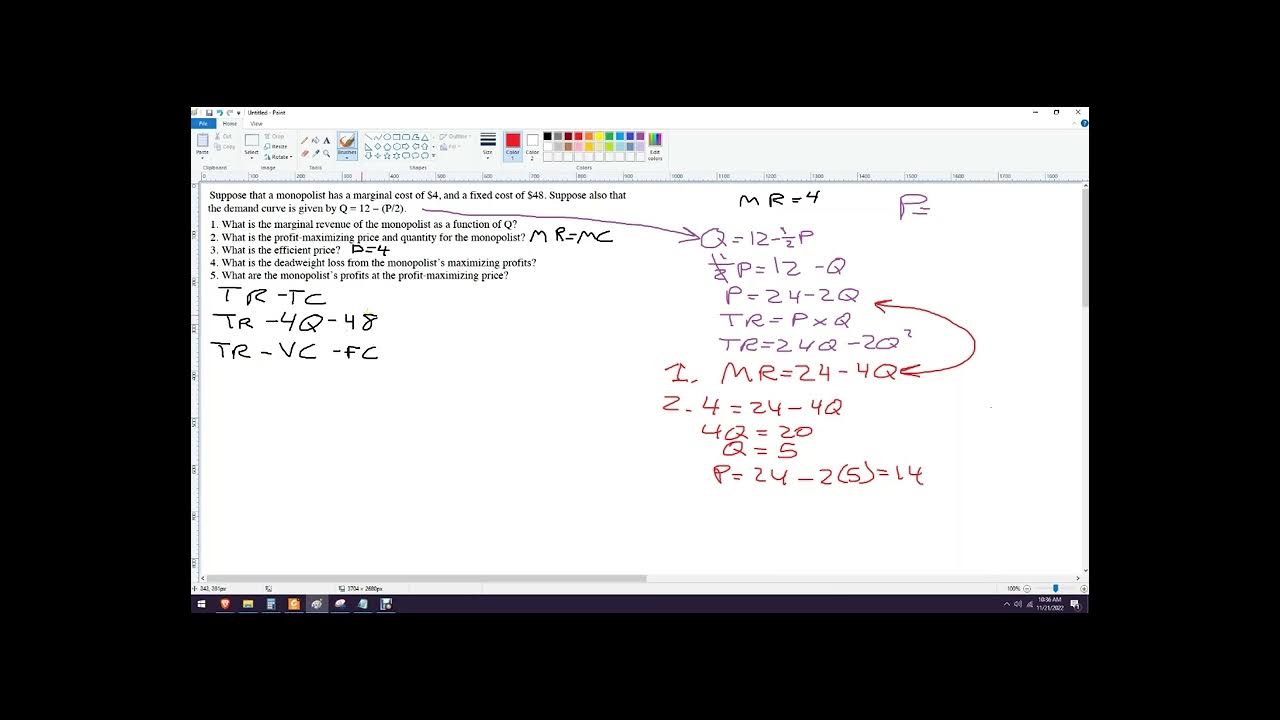 Untitled - Paint
File Home View
Paste Cut Copy Select Crop Resize Rotate Brushes Outline Fill Size Color 1 Color 2 Edit colors
Clipboard Image Tools Shapes Colors
100 200 300 400 500 600 700 800 900 1000 1100 1200 1300 1400 1500 1600 1700 1800
Suppose that a monopolist has a marginal cost of $4, and a fixed cost of $48. Suppose also that
the demand curve is given by Q = 12 – (P/2).
1. What is the marginal revenue of the monopolist as a function of Q?
2. What is the profit-maximizing price and quantity for the monopolist? MR=MC
3. What is the efficient price? P=4
4. What is the deadweight loss from the monopolist's maximizing profits?
5. What are the monopolist's profits at the profit-maximizing price?
TR - TC
TR - 4Q - 48
TR - VC - FC
MR=4
P=
Q = 12-½P
½P = 12 - Q
P = 24 - 2Q
TR = P x Q
TR = 24Q - 2Q²
1. MR = 24 - 4Q
2. 4 = 24 - 4Q
4Q = 20
Q = 5
P = 24 - 2(5) = 14
343, 281px
3704 × 2680px
100%
10:36 AM
11/21/2022